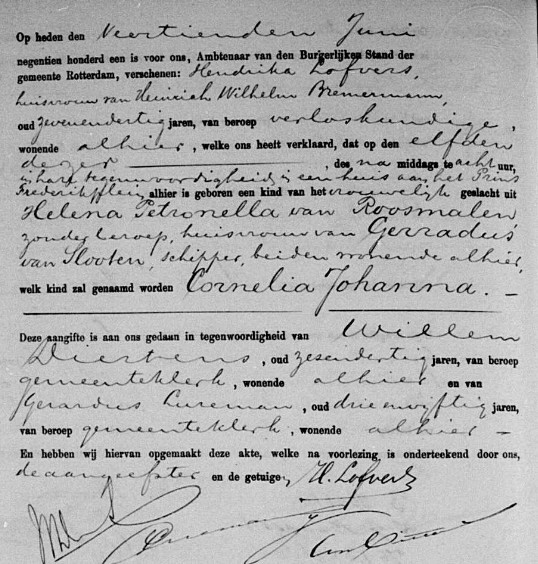 Op heden den Veertienden Juni
negentien honderd een is voor ons, Ambtenaar van den Burgerlijken Stand der
gemeente Rotterdam, verschenen: Hendrika Lofvers,
huisvrouw van Heinrich Wilhelm Bremermann,
oud zevenendertig jaren, van beroep verloskundige,
wonende alhier, welke ons heeft verklaard, dat op den elfden
dezer, des na middags te acht uur,
in hare tegenwoordigheid, in een huis aan het Prins
Frederikplein, alhier is geboren een kind van het vrouwelijk geslacht uit
Helena Petronella van Roosmalen
zonder beroep, huisvrouw van Gerradus
van Slooten, schipper, beiden wonende alhier,
welk kind zal genaamd worden Cornelia Johanna. –
Deze aangifte is aan ons gedaan in tegenwoordigheid van Willem
oud zesendertig jaren, van beroep
gemeenteklerk, wonende alhier en van
Gerardus Cureman, oud drieenvijftig jaren,
van beroep gemeenteklerk, wonende alhier –
En hebben wij hiervan opgemaakt deze akte, welke na voorlezing, is onderteekend door ons,
de aangeefster en de getuigen, H. Lofvers